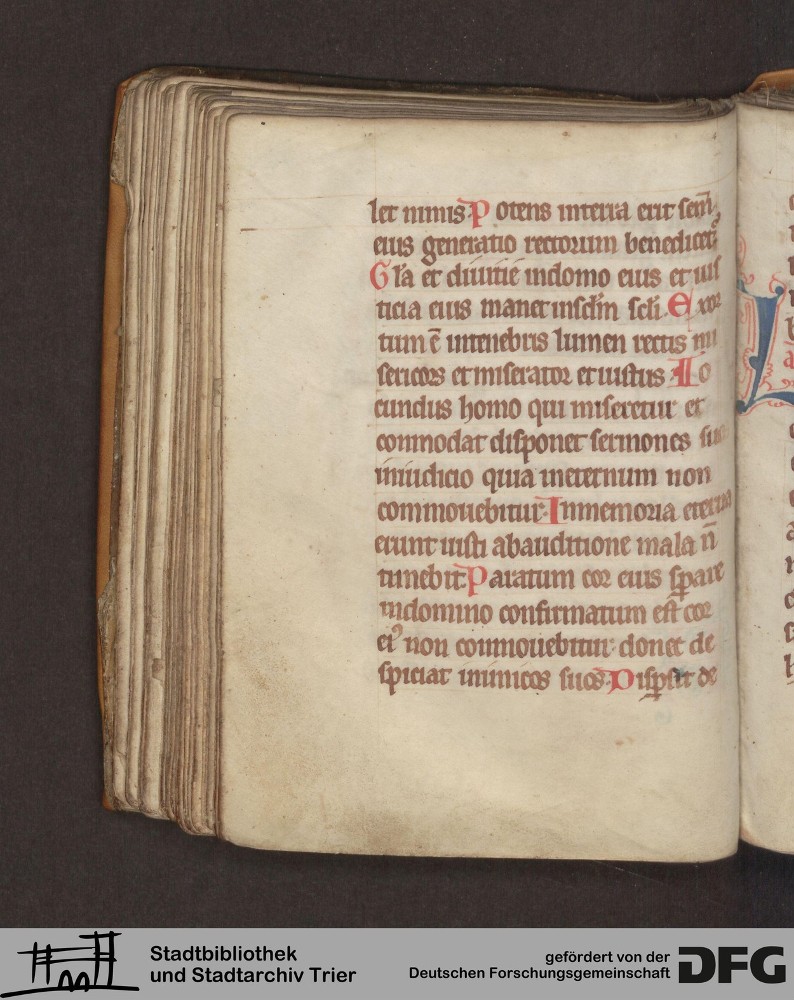 let nimis Potens interra erit sem̄
eius generatio rectorum benedicet᷑
Gl̄a et diuitie indomo eius et ius
ticia eius manet insclm̄ scl̄i Exor
tum ē intenebris lumen rectis mi
sericors et miserator et iustus Io
cundus homo qui miseretur et
commodat disponet sermones suos
iniudicio quia ineternum non
commouebitur Inmemoria eterna
erunt iusti abauditione mala n̄
timebit Paratum cor eius sꝑare
indomino confirmatum est cor
eiꝰ non commouebitur donec de
spiciat inimicos suos Disꝑsit de
Stadtbibliothek
und Stadtarchiv Trier
gefördert von der
Deutschen Forschungsgemeinschaft
DFG